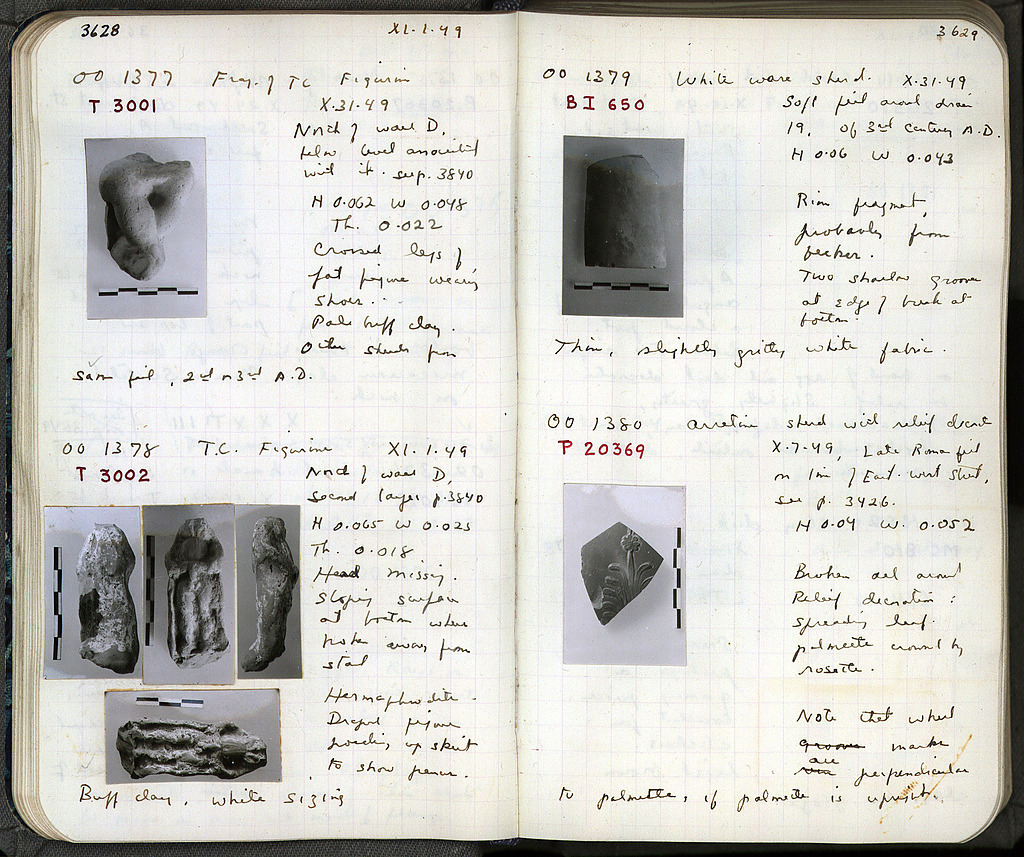 3628
XI.1.49
OO 1377 Frag. of TC Figurine
T 3001
X.31.49
North of wall D,
below level associated
with it. see p. 3840
H 0.062 W 0.048
Th. 0.022
Crossed legs of
fat figure wearing
shoes.
Pale buff clay.
Other sherds from
same fill, 2nd or 3rd A.D.
OO 1378 T.C. Figurine XI.1.49
T 3002
North of wall D,
second layer p. 3840
H 0.065 W 0.025
Th. 0.018
Head missing.
Sloping surface
at bottom where
broken away from
stand
Hermaphrodite.
Draped figure
holding up skirt
to show penis.
Buff clay, white sizing
3629
OO 1379 White ware sherd. X.31.49
BI 650
Soft fill around drain
19, of 3rd century A.D.
H 0.06 W 0.043
Rim fragment,
probably from
beaker.
Two shallow grooves
at edge of break at
bottom.
Thin, slightly gritty white fabric.
OO 1380 Arretine sherd with relief decorat
P 20369
X.7.49, Late Roman fill
on line of East-west street,
see p. 3426.
H 0.04 W. 0.052
Broken all around
Relief decoration:
spreading leaf
palmette crowned by
rosette.
Note that wheel
grooves marks
are perpendicular
to palmette, if palmette is upright.